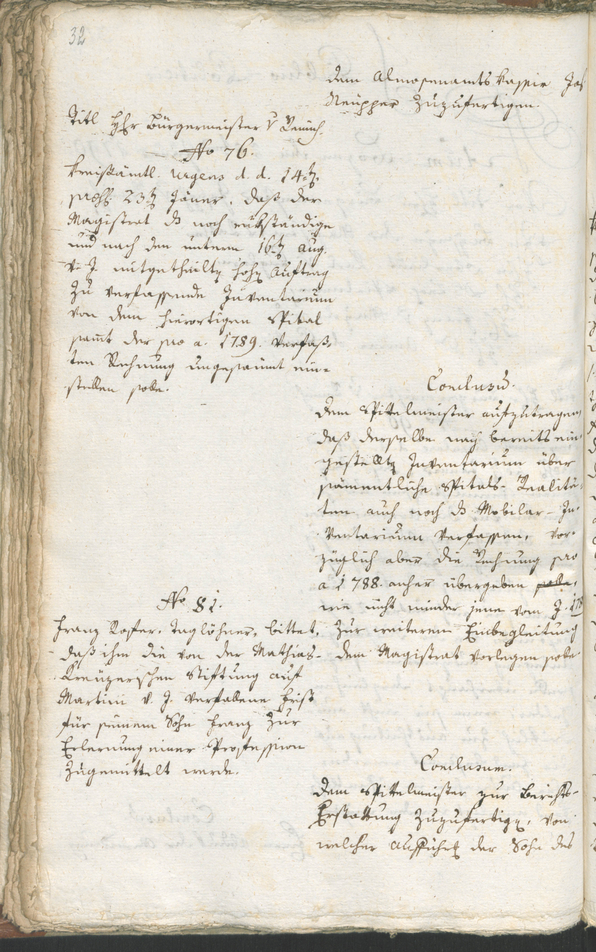 32
dem Almosenamts kassir Jos
Neupper zuzufertigen.
Titl Hr Bürgermeister v
No 76.
Kreisämtl. d. d. 14t
23t Jäner. daß der
Magistrat d noch rückständige
und nach dem unterm 16t Aug.
v. J. mitgetheilten hohen Auftrag
zu verfassende Inventarium
von dem hierortigen Spital
samt der pro a. 1789. verfaß-
ten Rechnung ungesäumt ein-
stellen solle.
Conclusum.
Dem Spittelmeister aufzutragen
daß derselbe nach bereits ein
gestellten Inventarium über
sämmentliche Spitals-Realitä-
ten auch noch d Mobilar-In-
ventarium verfassen, vor-
züglich aber die Rechnung pro
a 1788. anher übergeben solle,
wie nicht minder jene vom J. 178
zur weiteren Einbegleitung
dem Magistrat vorlegen solle
No 81.
Franz Koster, Taglöhner, bittet,
daß ihm die von der Mathias-
Kreuzerschen Stiftung auf
Martini v. J. verfallene Frist
für seinem Sohn Franz zur
Erlernung einer Profession
zugemittelt werde.
Conclusum.
Dem Spittelmeister zur Berichts-
Erstattung zuzufertigen, von
welcher der Sohn des